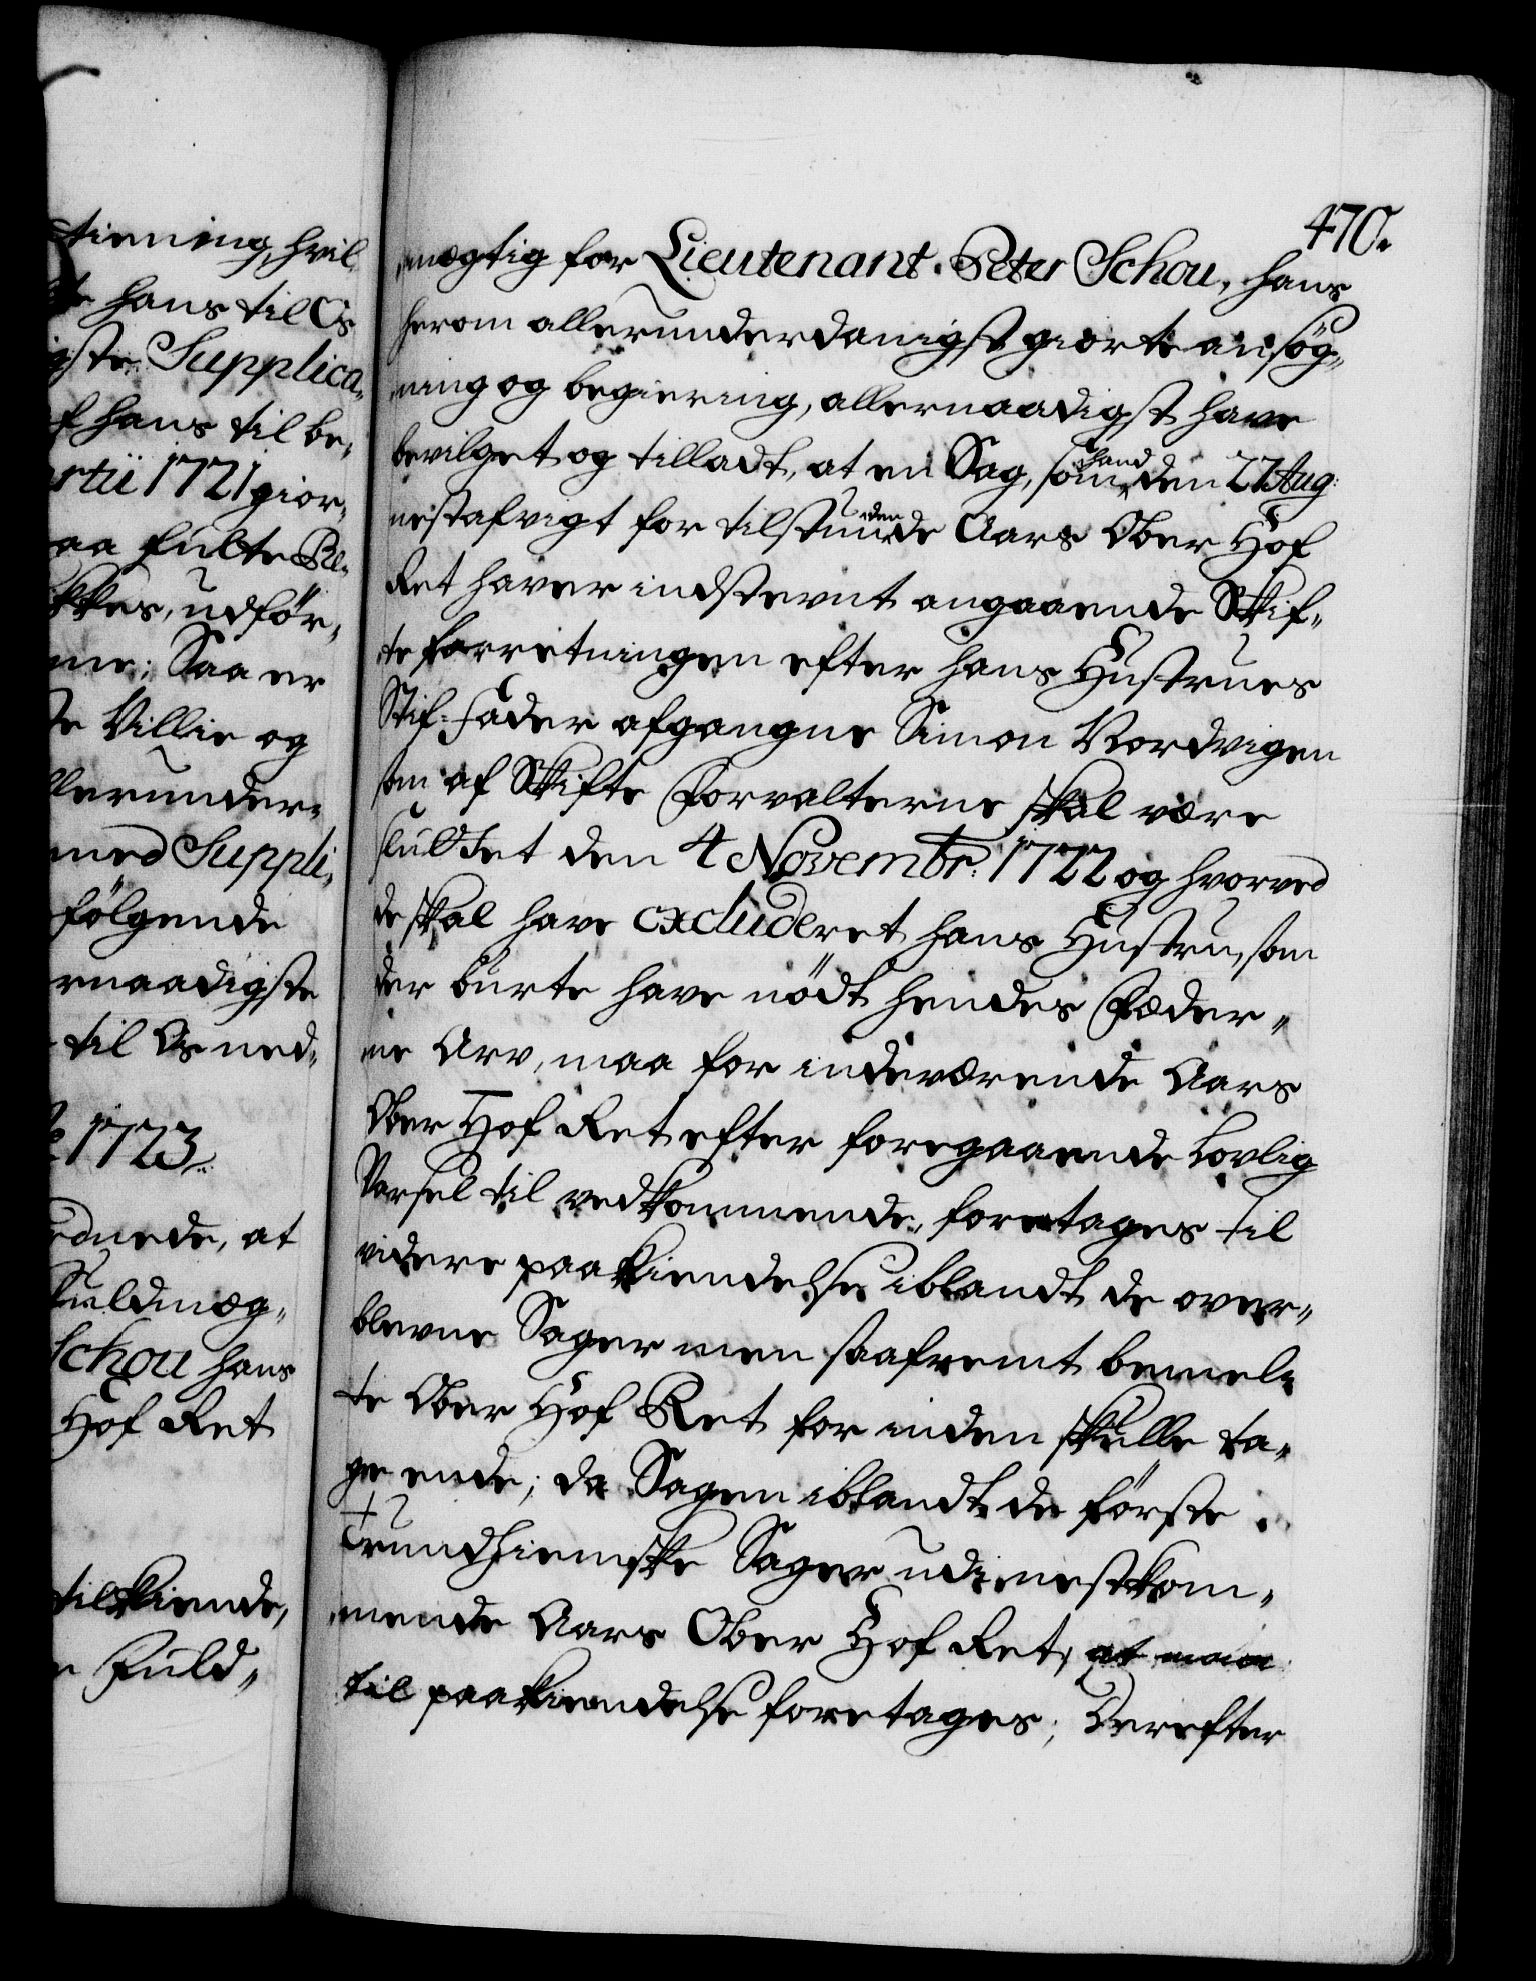 tiening, hvil-
te hans til Os
igste Supplica-
f hans til be-
artii 1721 gior-
aa fulte Be-
ikkes, udför-
me; Saa er
te Villie og
llerunder-
med Suppli-
fölgende
rnaadigste
til Os ned-
1723.
ednede, at
Fuldmæg-
Schou hans
Hof Ret
tilkiende,
e Fuld-
470.
mægtig for Lieutenant Peter Schou, hans
herom allerunderdanigst giorte ansög-
ning og begiering, allernaadigst have
bevilget og tilladt, at en Sag, som hand den 27 Aug:
nestafvigt for tilstundende Aars Ober Hof
Ret haver indstevnt angaaende Skif-
te forretningen efter hans Hustrues
Stif-Fader afgangne Simon Nordvigen
som af Skifte Forvalterne skal være
sluttet den 4 Novembr: 1722 og hvorved
de skal have excluderet hans Hustru, som
der burte have nödt hendes Fæder-
ne Arv, maa for indeværende Aars
Ober Hof Ret efter foregaaende Lovlig
Varsel til vedkommende, foretages til
videre paakiendelse iblandt de over-
blevne Sager men saafremt bemel-
te Ober Hof Ret for inden skulle ta-
ge ende; da Sagen iblandt de förste
Trundhiemske Sager udi nestkom-
mende Aars Ober Hof Ret, at maa
til paakiendelse foretages; Derefter